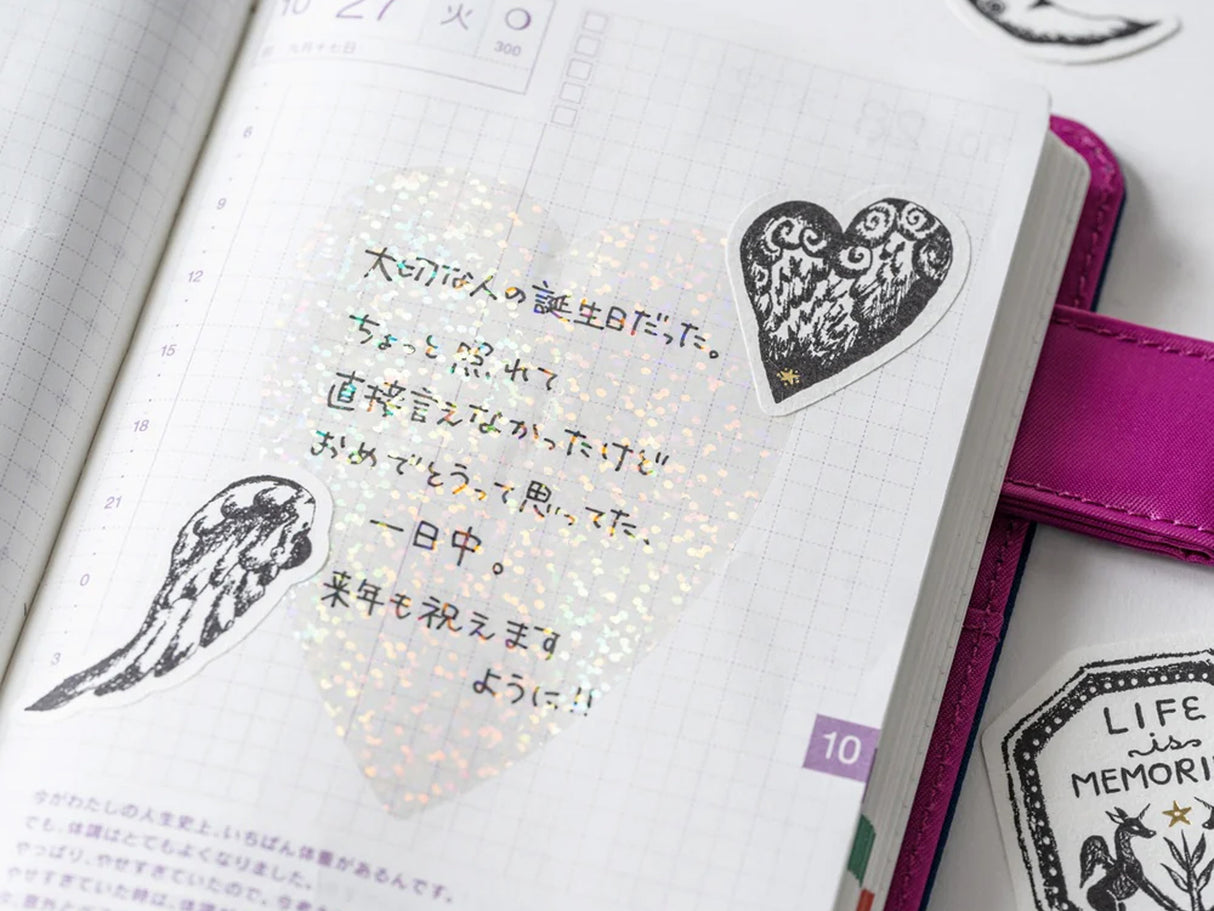 10 27 火
300
九月十七日
6
9
12
15
18
21
0
3
大切な人の誕生日だった。
ちょっと照れて
直接言えなかったけど
おめでとうって思ってた、
一日中。
来年も祝えます
ように!!
10
今がわたしの人生史上、いちばん体重があるんです。
でも、体調はとてもよくなりました。
やっぱり、やせすぎていたので、
やせすぎていた時は、体調が
LIFE
is
MEMORI